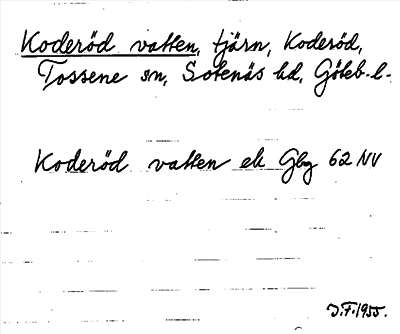 Koderöd vatten, tjärn, Koderöd,
Tossene sn, Sotenäs hd, Göteb. l.
Koderöd vatten ek Gbg 62 NV
J.F. 1955.